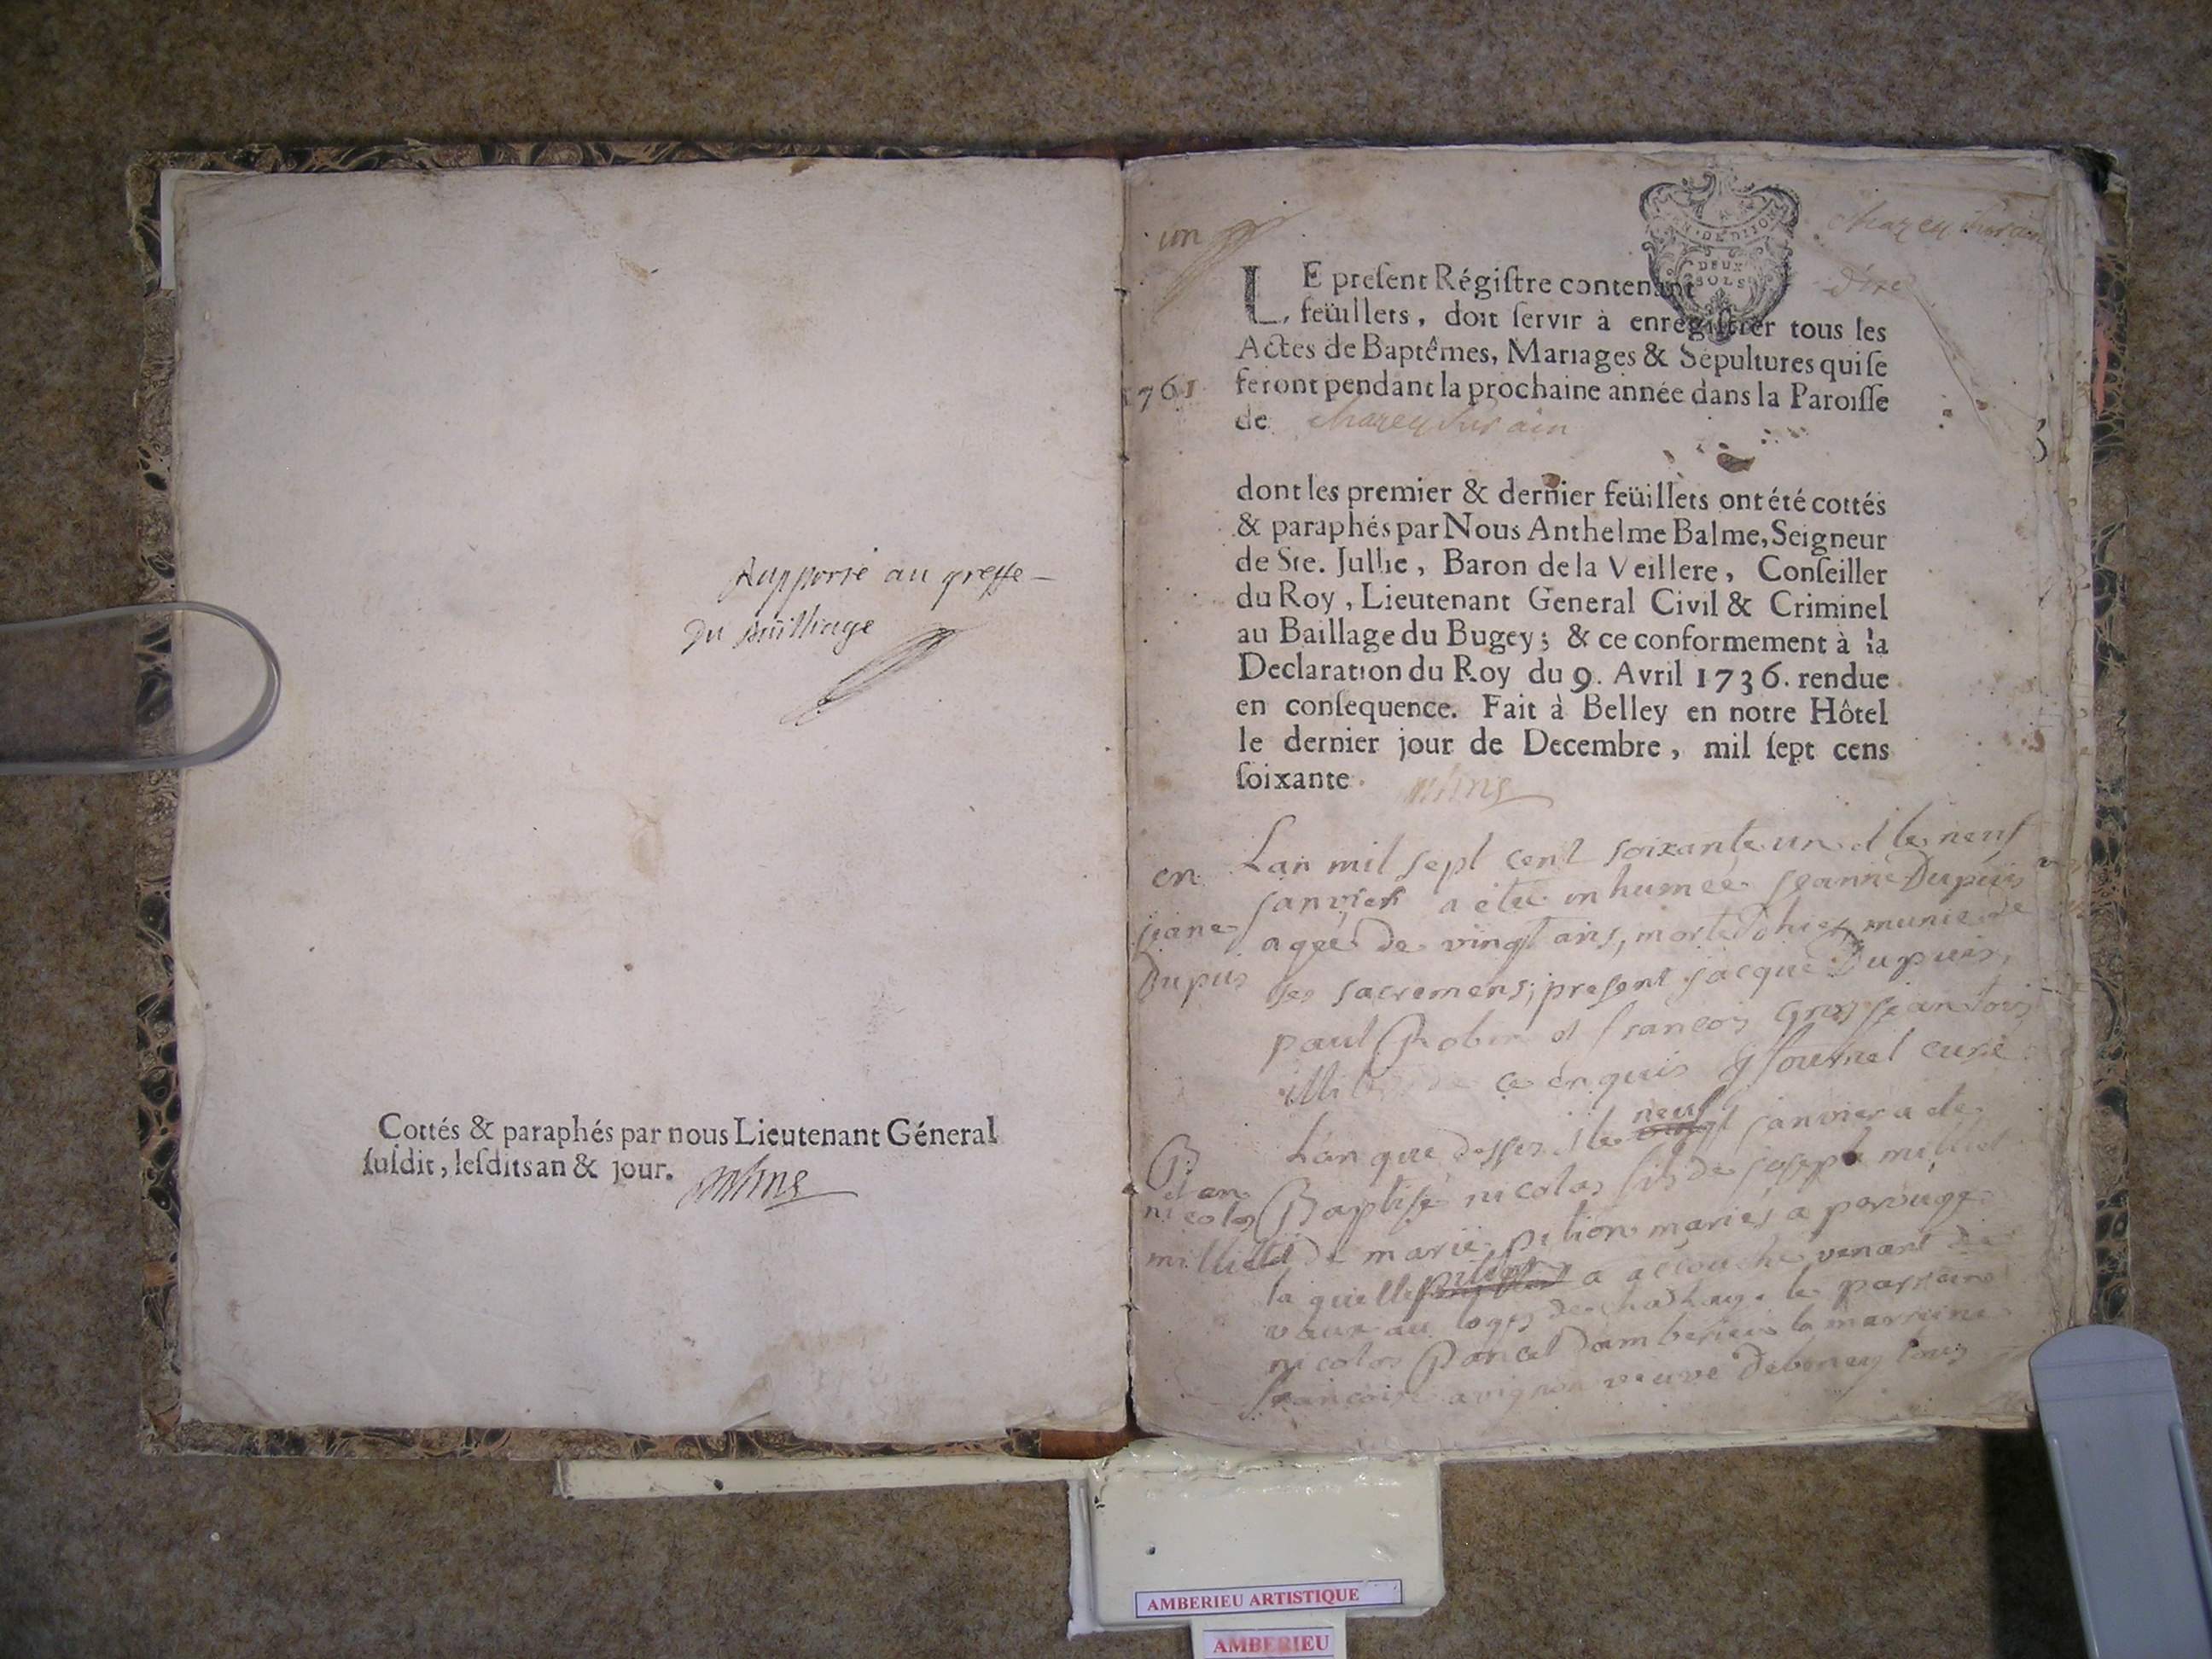 Rapporté au greffe
du bailliage
Cottés & paraphés par nous Lieutenant Géneral
suſdit, leſdits an & jour.
un
EN·DE DIJON
DEUX
SOLS
chazey sur ain
LE preſent Régiſtre contenant
feüillets, doit ſervir à enrégiſtrer tous les
Actes de Baptêmes, Mariages & Sépultures qui ſe
1761
feront pendant la prochaine année dans la Paroiſſe
de chazey sur ain
dont les premier & dernier feüillets ont été cottés
& paraphés par Nous Anthelme Balme, Seigneur
de Ste. Jullie, Baron de la Veillere, Conſeiller
du Roy, Lieutenant General Civil & Criminel
au Baillage du Bugey; & ce conformement à la
Declaration du Roy du 9. Avril 1736. rendue
en conſequence. Fait à Belley en notre Hôtel
le dernier jour de Decembre, mil ſept cens
ſoixante.
en
jeane
Dupuis
Lan mil sept cent soixante un et le neuf
janvier a eté inhumée jeanne Dupuis
agée de vingt ans, morte d'hier, munie de
ses sacremens; present jacque Dupuis,
paul Robin et francois Grosjean tous
ce enquis fournel curé
B
et an
nicolas
milliet
Lan que dessus et le neuf janvier a eté
Baptisé nicolas fils de joseph milliet
et de marie pition mariés a perouge
la quelle a accouché venant de
vaux au logis de le parrain
nicolas Poncet Damberieu la marraine
francoise avignon veuve Debeney tous
AMBERIEU ARTISTIQUE
AMBERIEU